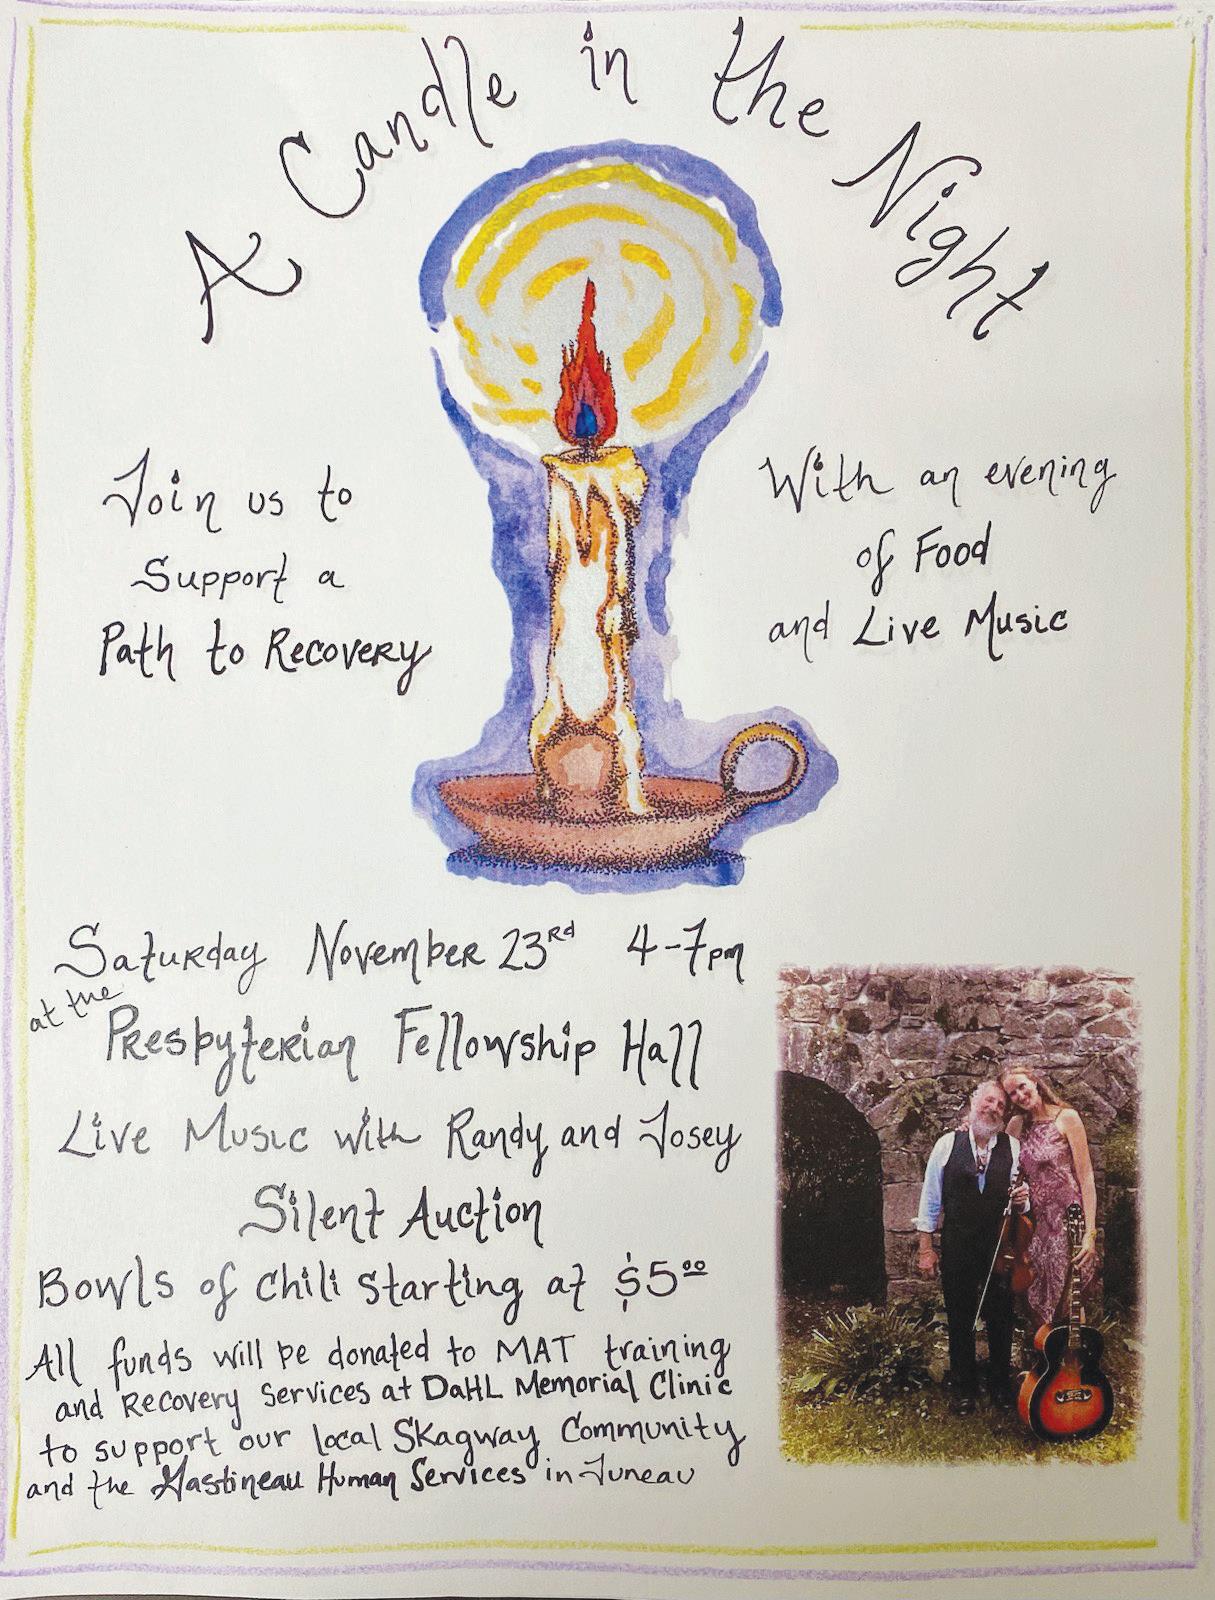 A Candle in the Night
Join us to
Support a
Path to Recovery
With an evening
of Food
and Live Music
Saturday November 23rd 4-7pm
at the
Presbyterian Fellowship Hall
Live Music with Randy and Josey
Silent Auction
Bowls of chili starting at $5.00
All funds will be donated to MAT training
and Recovery Services at DaHL Memorial Clinic
to support our local Skagway Community
and the Gastineau Human Services in Juneau